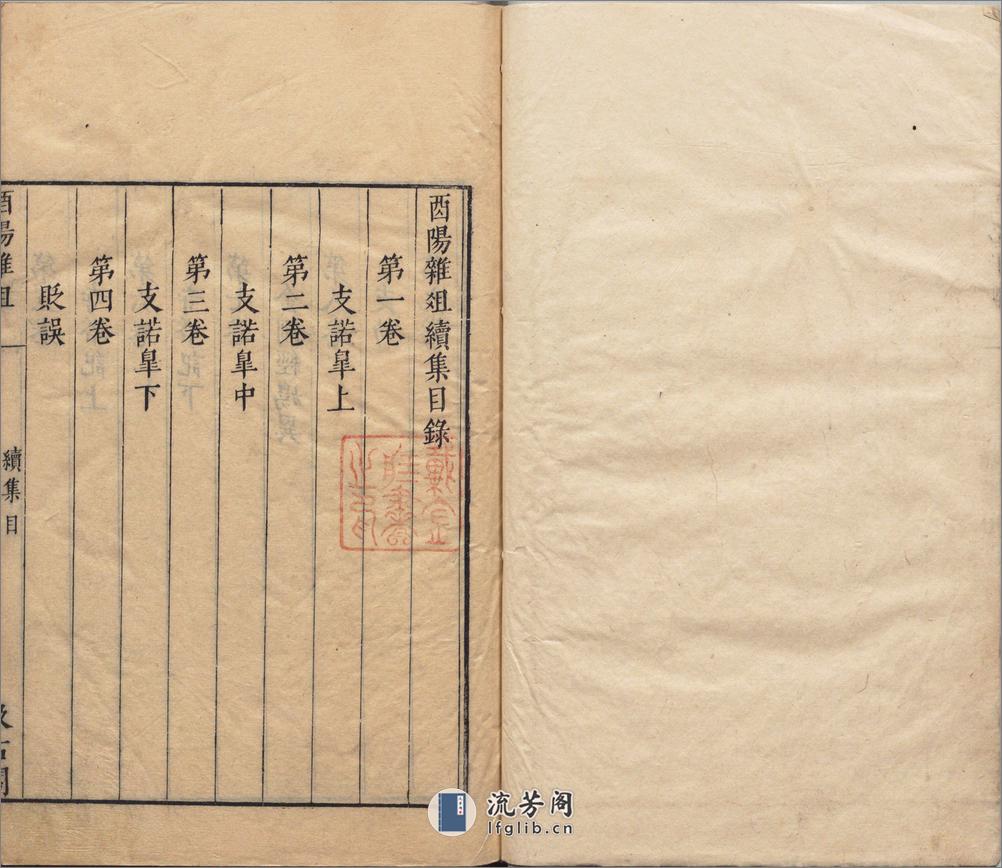 酉陽雜俎續集目錄
第一卷
支諾皐上
第二卷
支諾皐中
第三卷
支諾皐下
第四卷
貶誤
酉陽雜俎
續集目
汲古閣
流芳阁
lfglib.cn